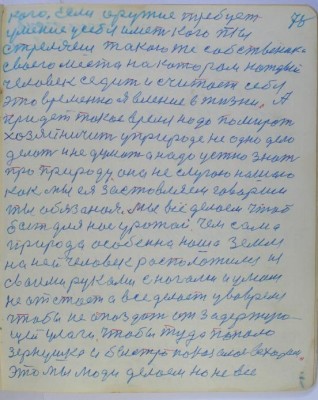 кого, Если оружие требует 75
умение у себя иметь кого ты
стреляем такого же собственника
своего места на котором каждый
человек сидит и считает себя
это временное явление в жизни. А
придет такое время надо помирать
хозяйничать у природе не одно дело
делать и не думать а надо устно знать
про природу она не слугою нашего
как мы ея заставляем говорим
ты обязаная. Мы все делаем чтоб
был для нас урожай, Чем сама
природа особенно наша земля
на ней человек расположился из
своими руками с ногами и умом
не отстает а все делает у во время
чтобы не опоздать от задержую
щей влаги, чтобы туда попало
зернушко и быстро показалось
Это мы люди делаем но не все